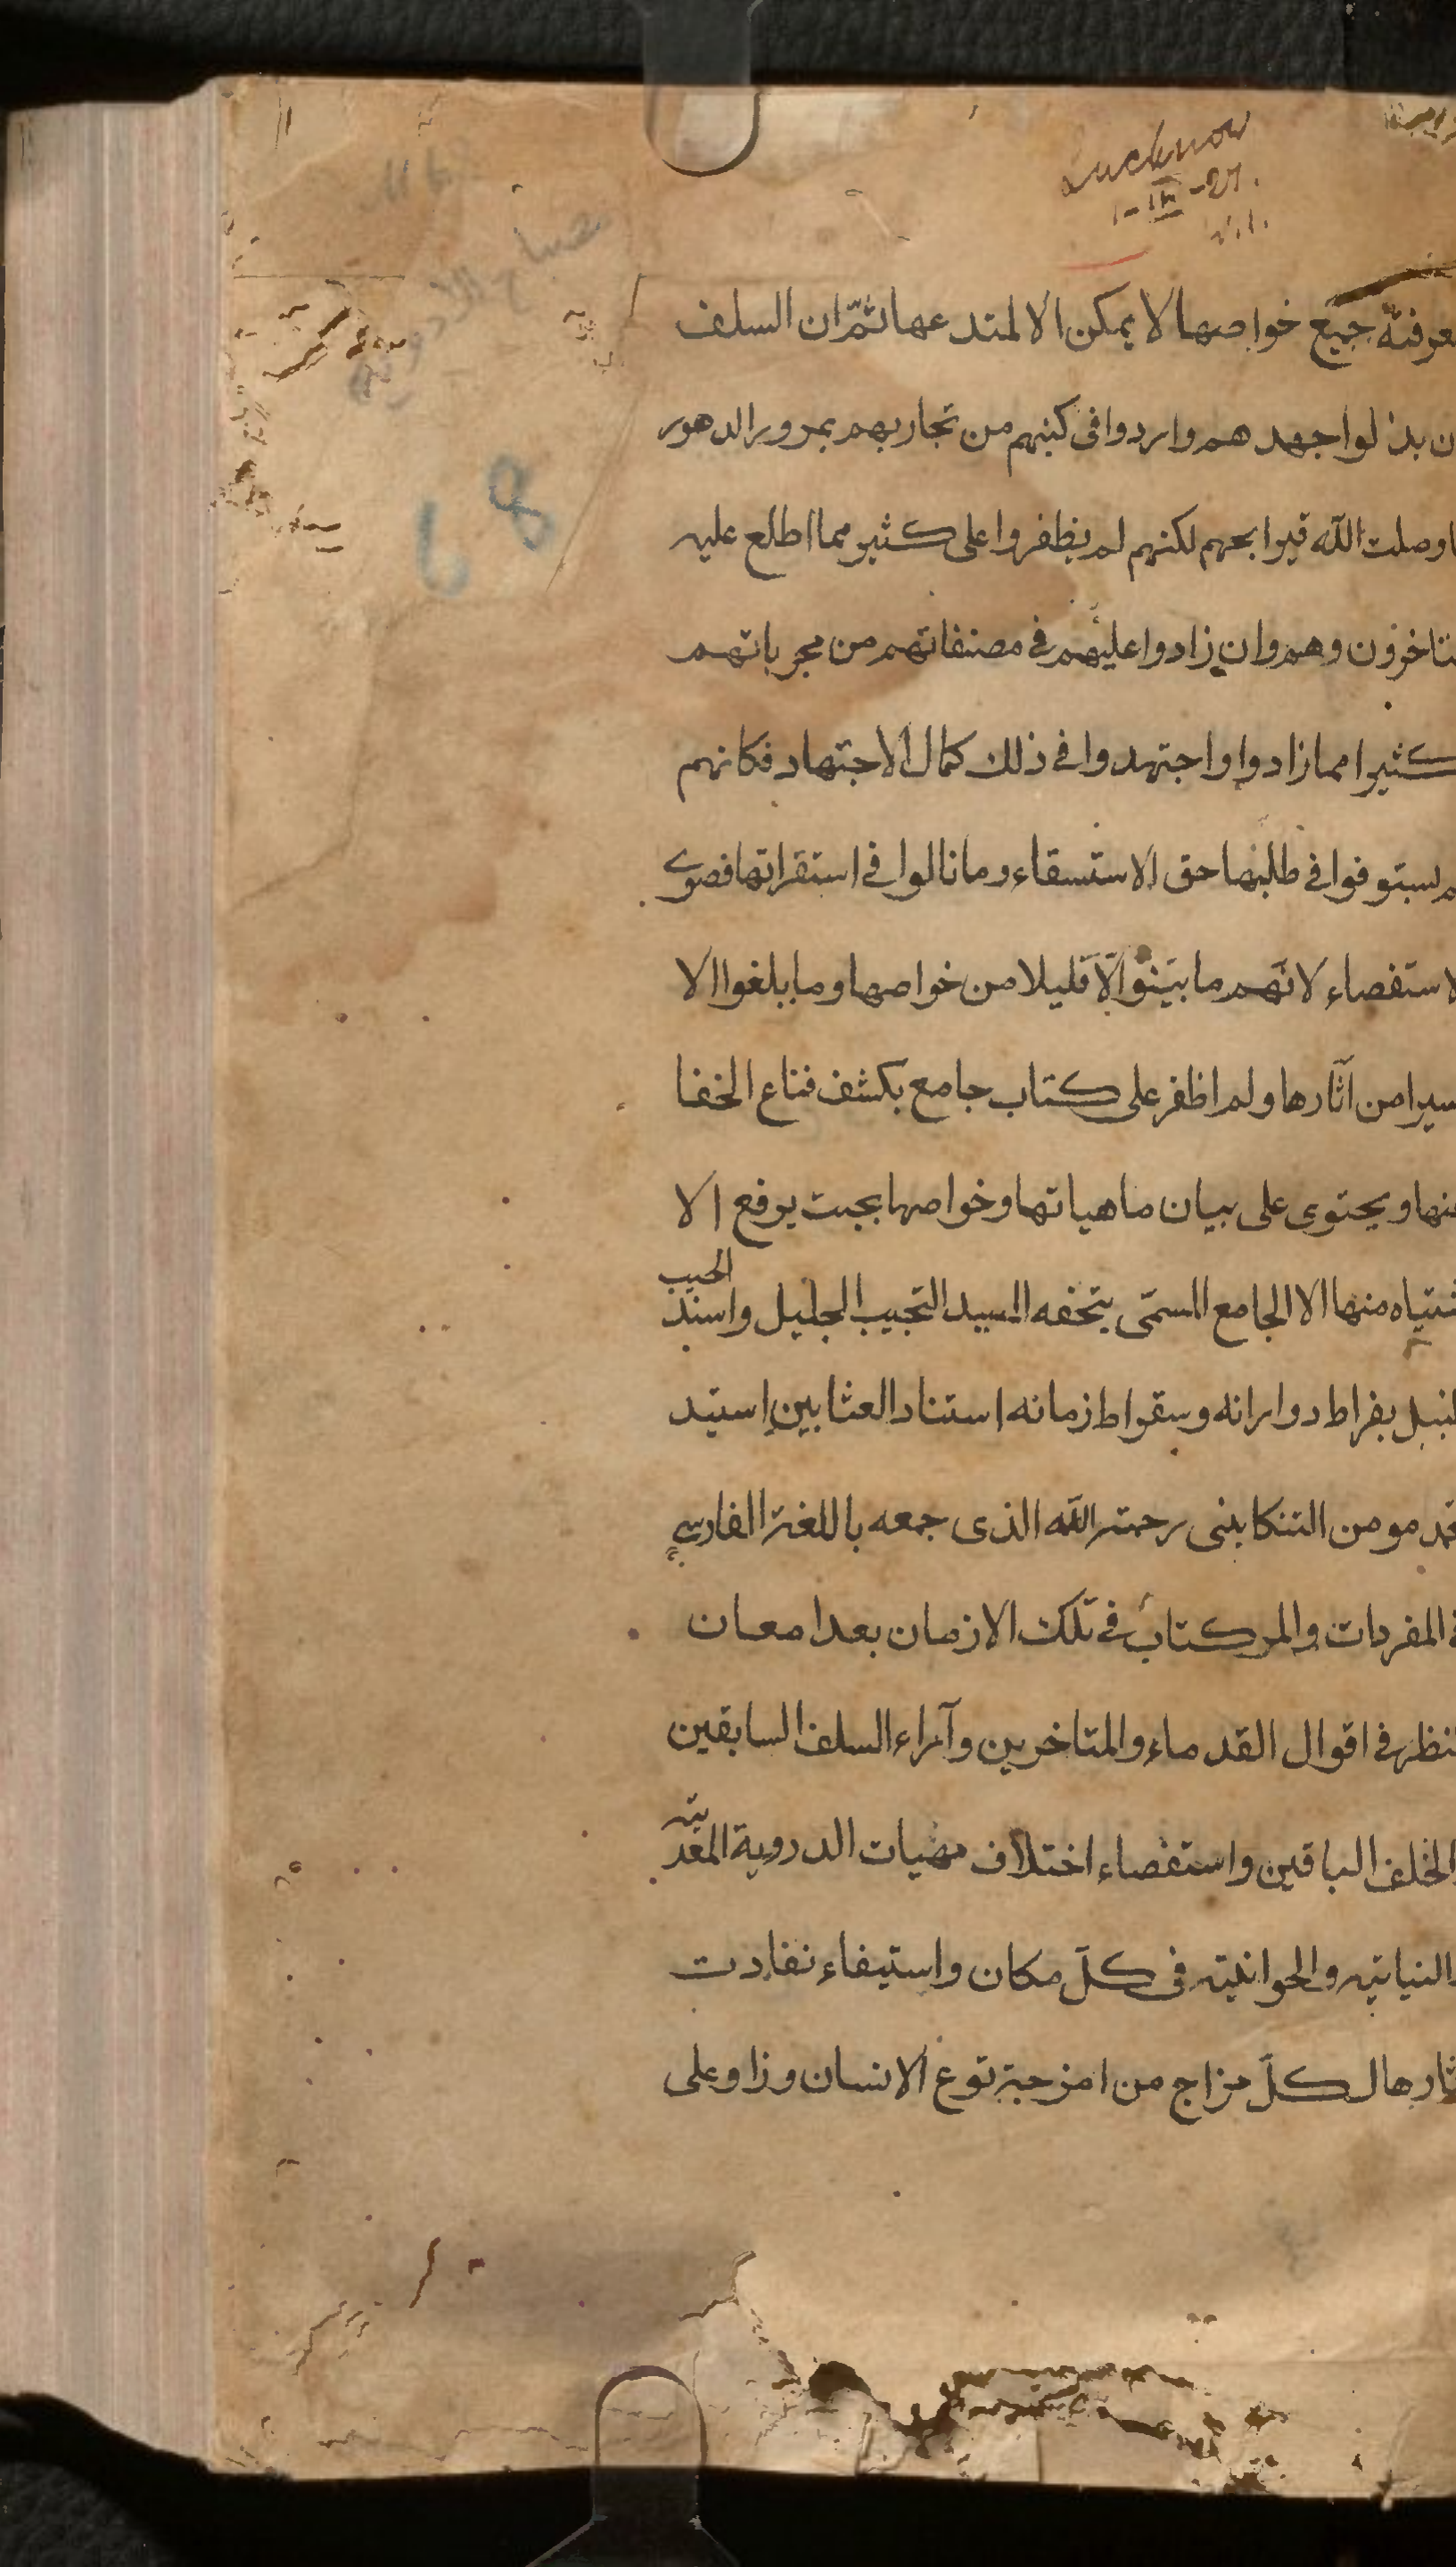 Lucknow
معرفته جميع خواصها لا يمكن الا لمتدعها ثمّ ان السلف
ن بذلوا جهدهم واردوا فى كتبهم من تجاربهم بمرور الدهور
وصلت اللّه قيرا بحهم لكنهم لم يظفروا على كثير مما اطلع عليه
متاخرون وهم وان زادوا عليهم فى مصنفاتهم من مجرباتهم
كثيرا مما زادوا واجتهدوا فى ذلك كمال الاجتهاد فكانهم
م لسبتوفوا فى طلبها حق الاستسقاء وما نالوا فى استقراتها قصوى
لاستقصاء لانّهم ما بيّنوا الّا قليلا من خواصها وما بلغوا الا
سيرا من آثارها ولم اظفر على كتاب جامع بكشف قناع الخفا
عنها ويحتوى على بيان ماهياتها وخواصها بحيث يرفع الا
شتباه منها الا الجامع المسمّى بتحفه السيد النجيب الجليل واسند
الحبيب
لنبيل بقراط دورانه وسقراط زمانه استناد العشابين استيد
محمد مومن التنكابنى رحمته اللّه الذى جمعه باللغة الفارسى
المفردات والمركتاب فى تلك الازمان بعد امعان
لنظر فى اقوال القدماء والمتاخرين وآراء السلف السابقين
والخلف الباقين واستقصاء اختلاف مهيات الدروية المعد
نيه
والنباتيه والحوانيته فى كلّ مكان واستيفاء نفادت
ثارها ل كلّ مزاج من امزجة نوع الانسان وزاو على